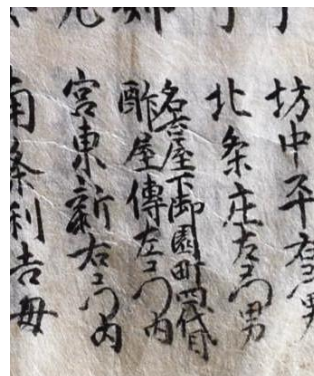 坊中平右衛門男
北条庄左衛門男
名古屋下御園町四代目
酢屋傳左衛門内
宮東新右衛門内
南条利吉母